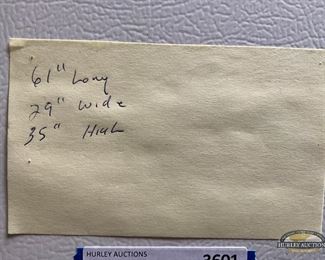 61" Long
29" Wide
35" High
HURLEY AUCTIONS
3601
HURLEY AUCTIONS